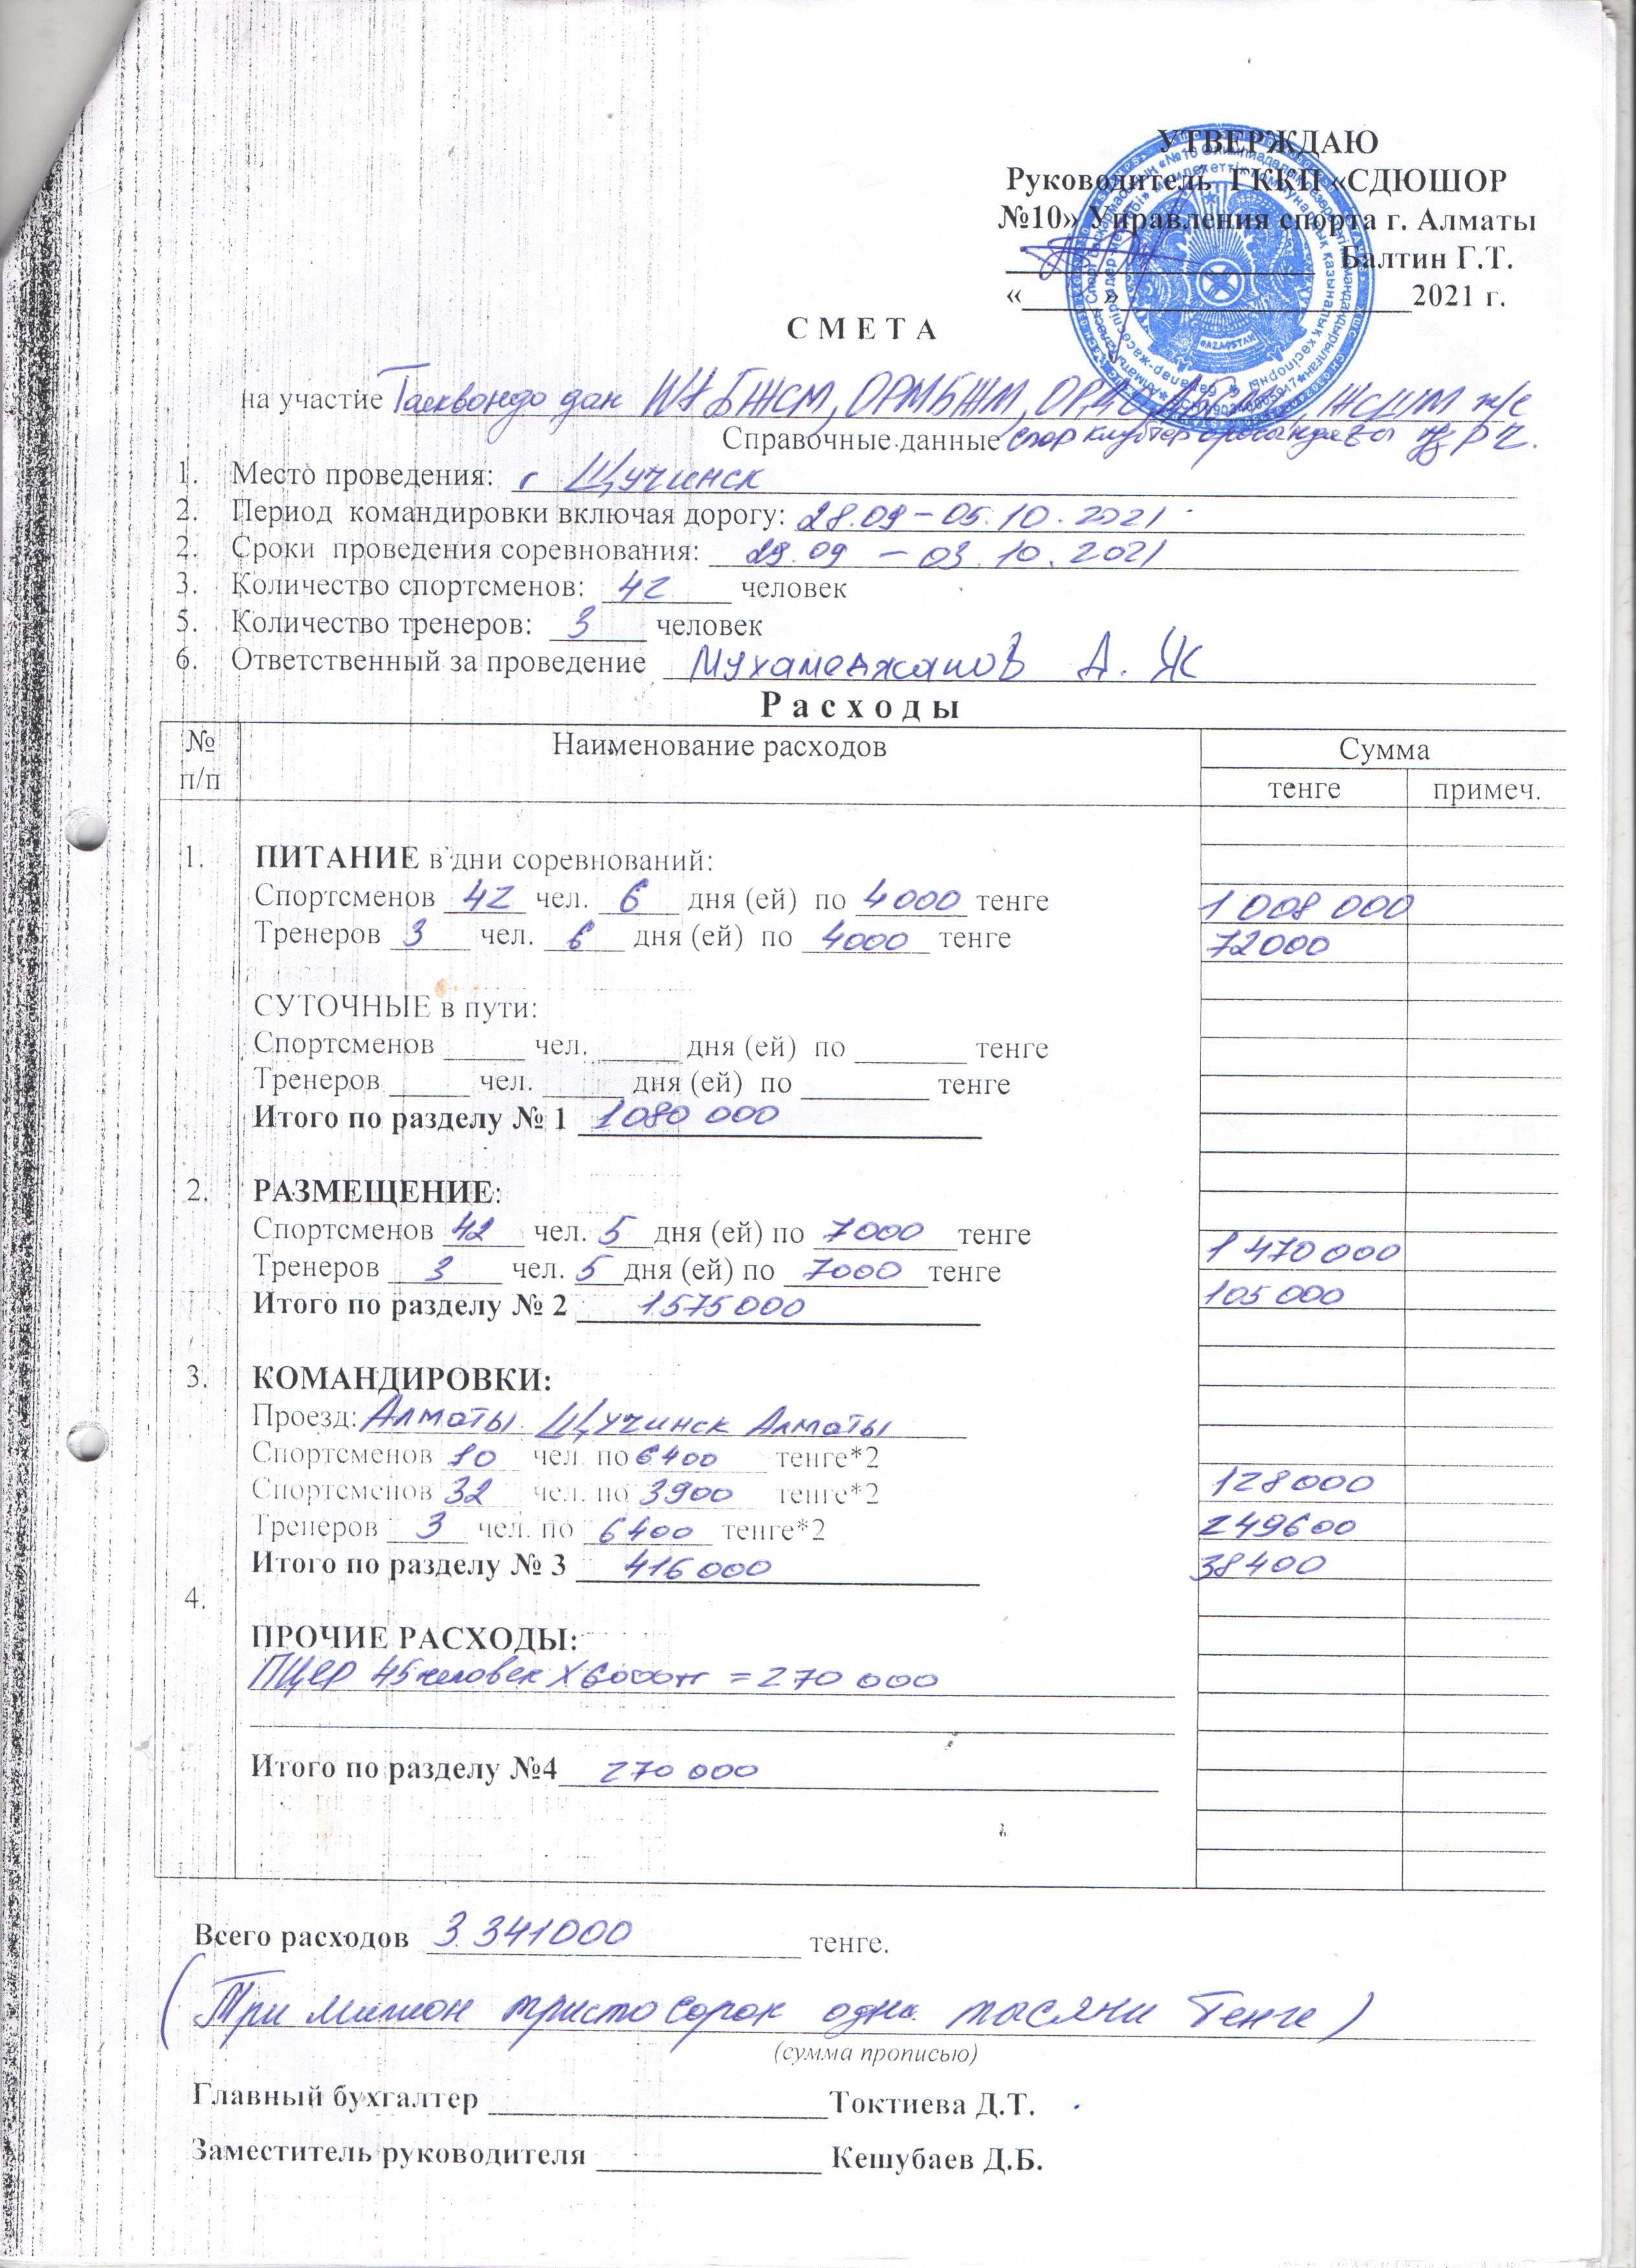 УТВЕРЖДАЮ
Руководитель ГККП «СДЮШОР
№10» Управления спорта г. Алматы
Балтин Г.Т.
«____» ____________2021 г.
С М Е Т А
на участие Таеквондо дан БЖСМ, ОРМБЖМ, ж/е
Справочные данные спорт
1. Место проведения: г Щучинск
2. Период командировки включая дорогу: 28.09 – 05.10.2021
2. Сроки проведения соревнования: 29.09 – 03.10.2021
3. Количество спортсменов: 42 человек
5. Количество тренеров: 3 человек
6. Ответственный за проведение Мухамеджанов А. Ж
Р а с х о д ы
№ п/п Наименование расходов Сумма
тенге примеч.
1. ПИТАНИЕ в дни соревнований:
Спортсменов 42 чел. 6 дня (ей) по 4000 тенге 1 008 000
Тренеров 3 чел. 6 дня (ей) по 4000 тенге 72000
СУТОЧНЫЕ в пути:
Спортсменов ______ чел. ______ дня (ей) по ________ тенге
Тренеров ______ чел. ______ дня (ей) по _________ тенге
Итого по разделу № 1 1080 000
2. РАЗМЕЩЕНИЕ:
Спортсменов 42 чел. 5 дня (ей) по 7000 тенге 1 470 000
Тренеров 3 чел. 5 дня (ей) по 7000 тенге 105 000
Итого по разделу № 2 1575 000
3. КОМАНДИРОВКИ:
Проезд: Алматы Щучинск Алматы
Спортсменов 10 чел. по 6400 тенге*2 128000
Спортсменов 32 чел. по 3900 тенге*2 249600
Тренеров 3 чел. по 6400 тенге*2 38400
Итого по разделу № 3 416 000
4.
ПРОЧИЕ РАСХОДЫ:
ПЦР 45 человек х 6000тг = 270 000
Итого по разделу №4 270 000
Всего расходов 3 341000 тенге.
(Три тристо сорок одна тысячи тенге)
(сумма прописью)
Главный бухгалтер Токтиева Д.Т.
Заместитель руководителя Кешубаев Д.Б.